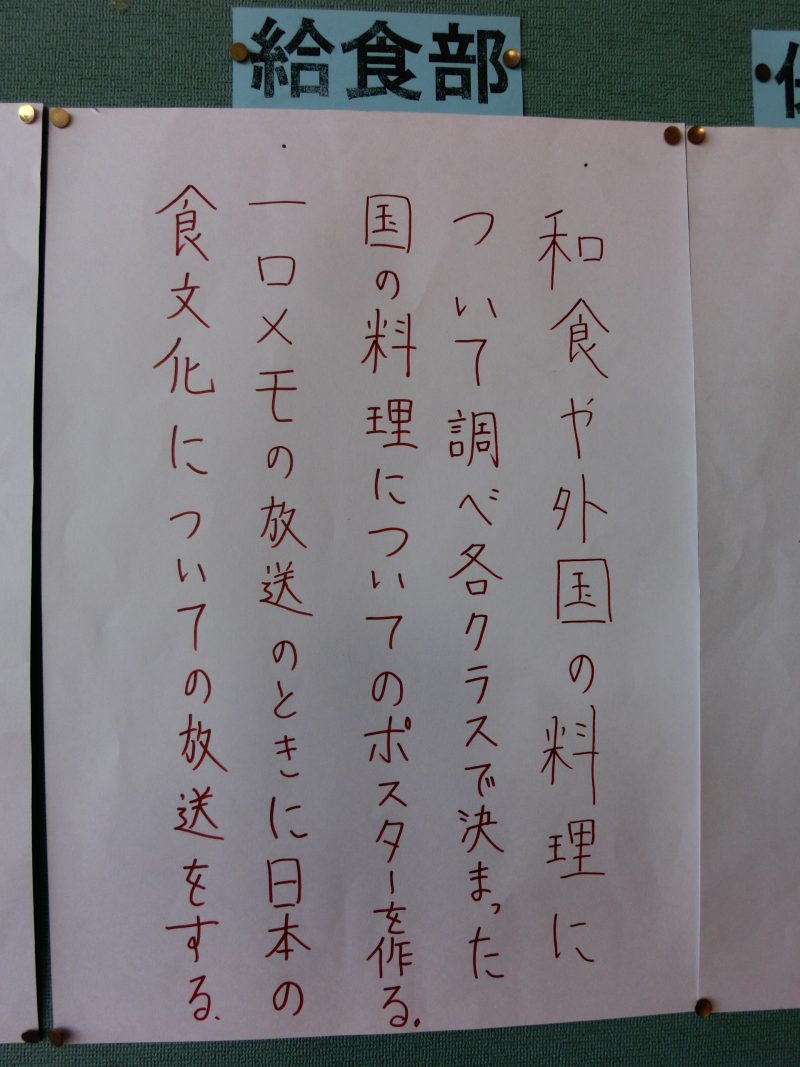 給食部
・和食や外国の料理に
ついて調べ各クラスで決まった
国の料理についてのポスターを作る。
・一口メモの放送のときに日本の
食文化についての放送をする。